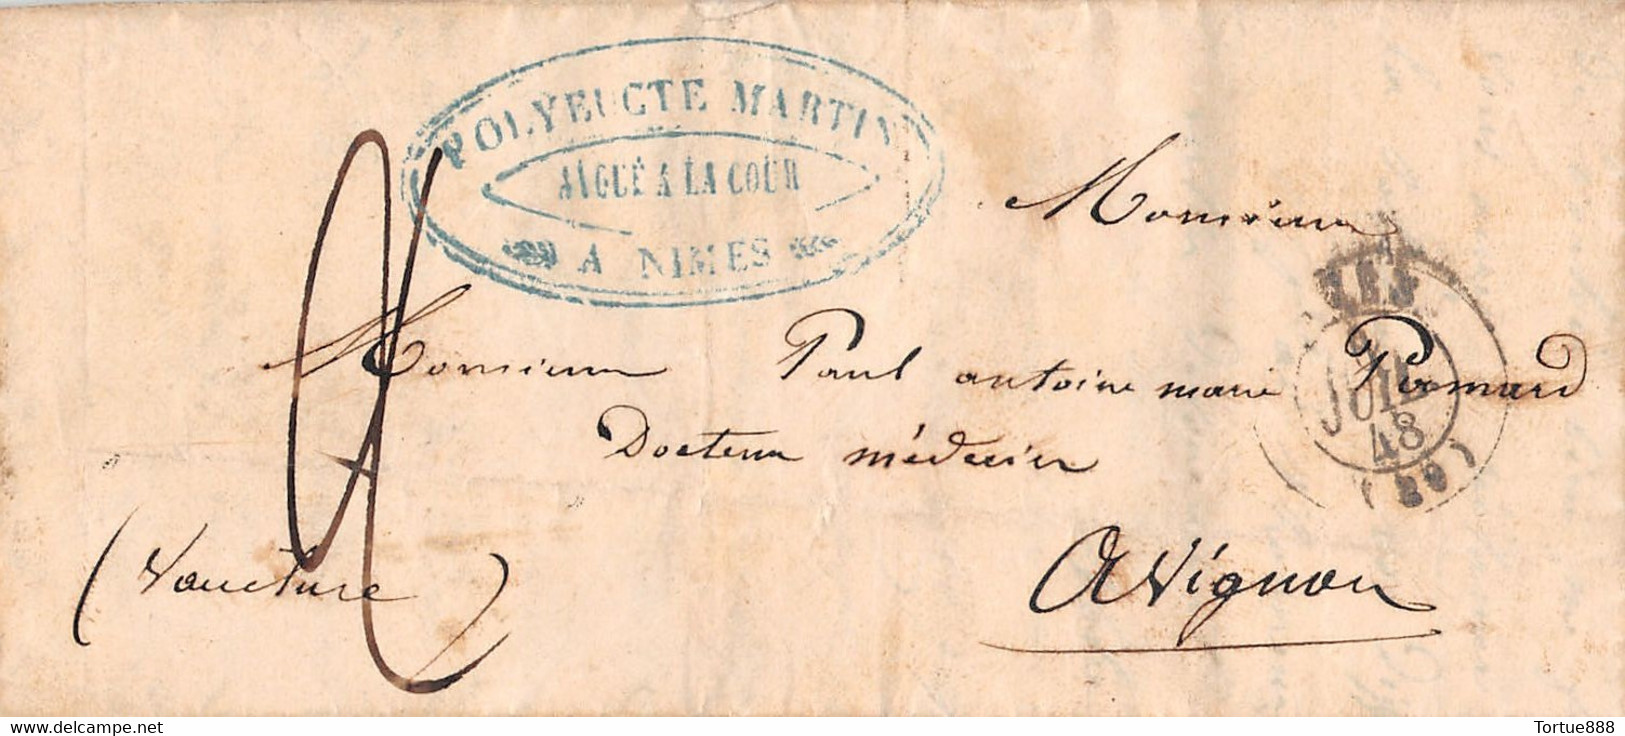 POLYEUCTE MARTIN
AVOUÉ A LA COUR
A NIMES
Monsieur
Monsieur Paul antoine marie Pamard
Docteur médecin
Avignon
(Vaucluse)
JUIL
48
(29)
Tortue888